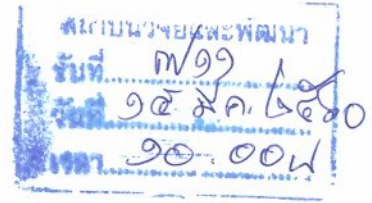 สถาบันวิจัยและพัฒนา
รับที่ ๗๑๑
วันที่ ๑๕ มี.ค. ๒๕๖๐
เวลา ๑๐.๐๐น